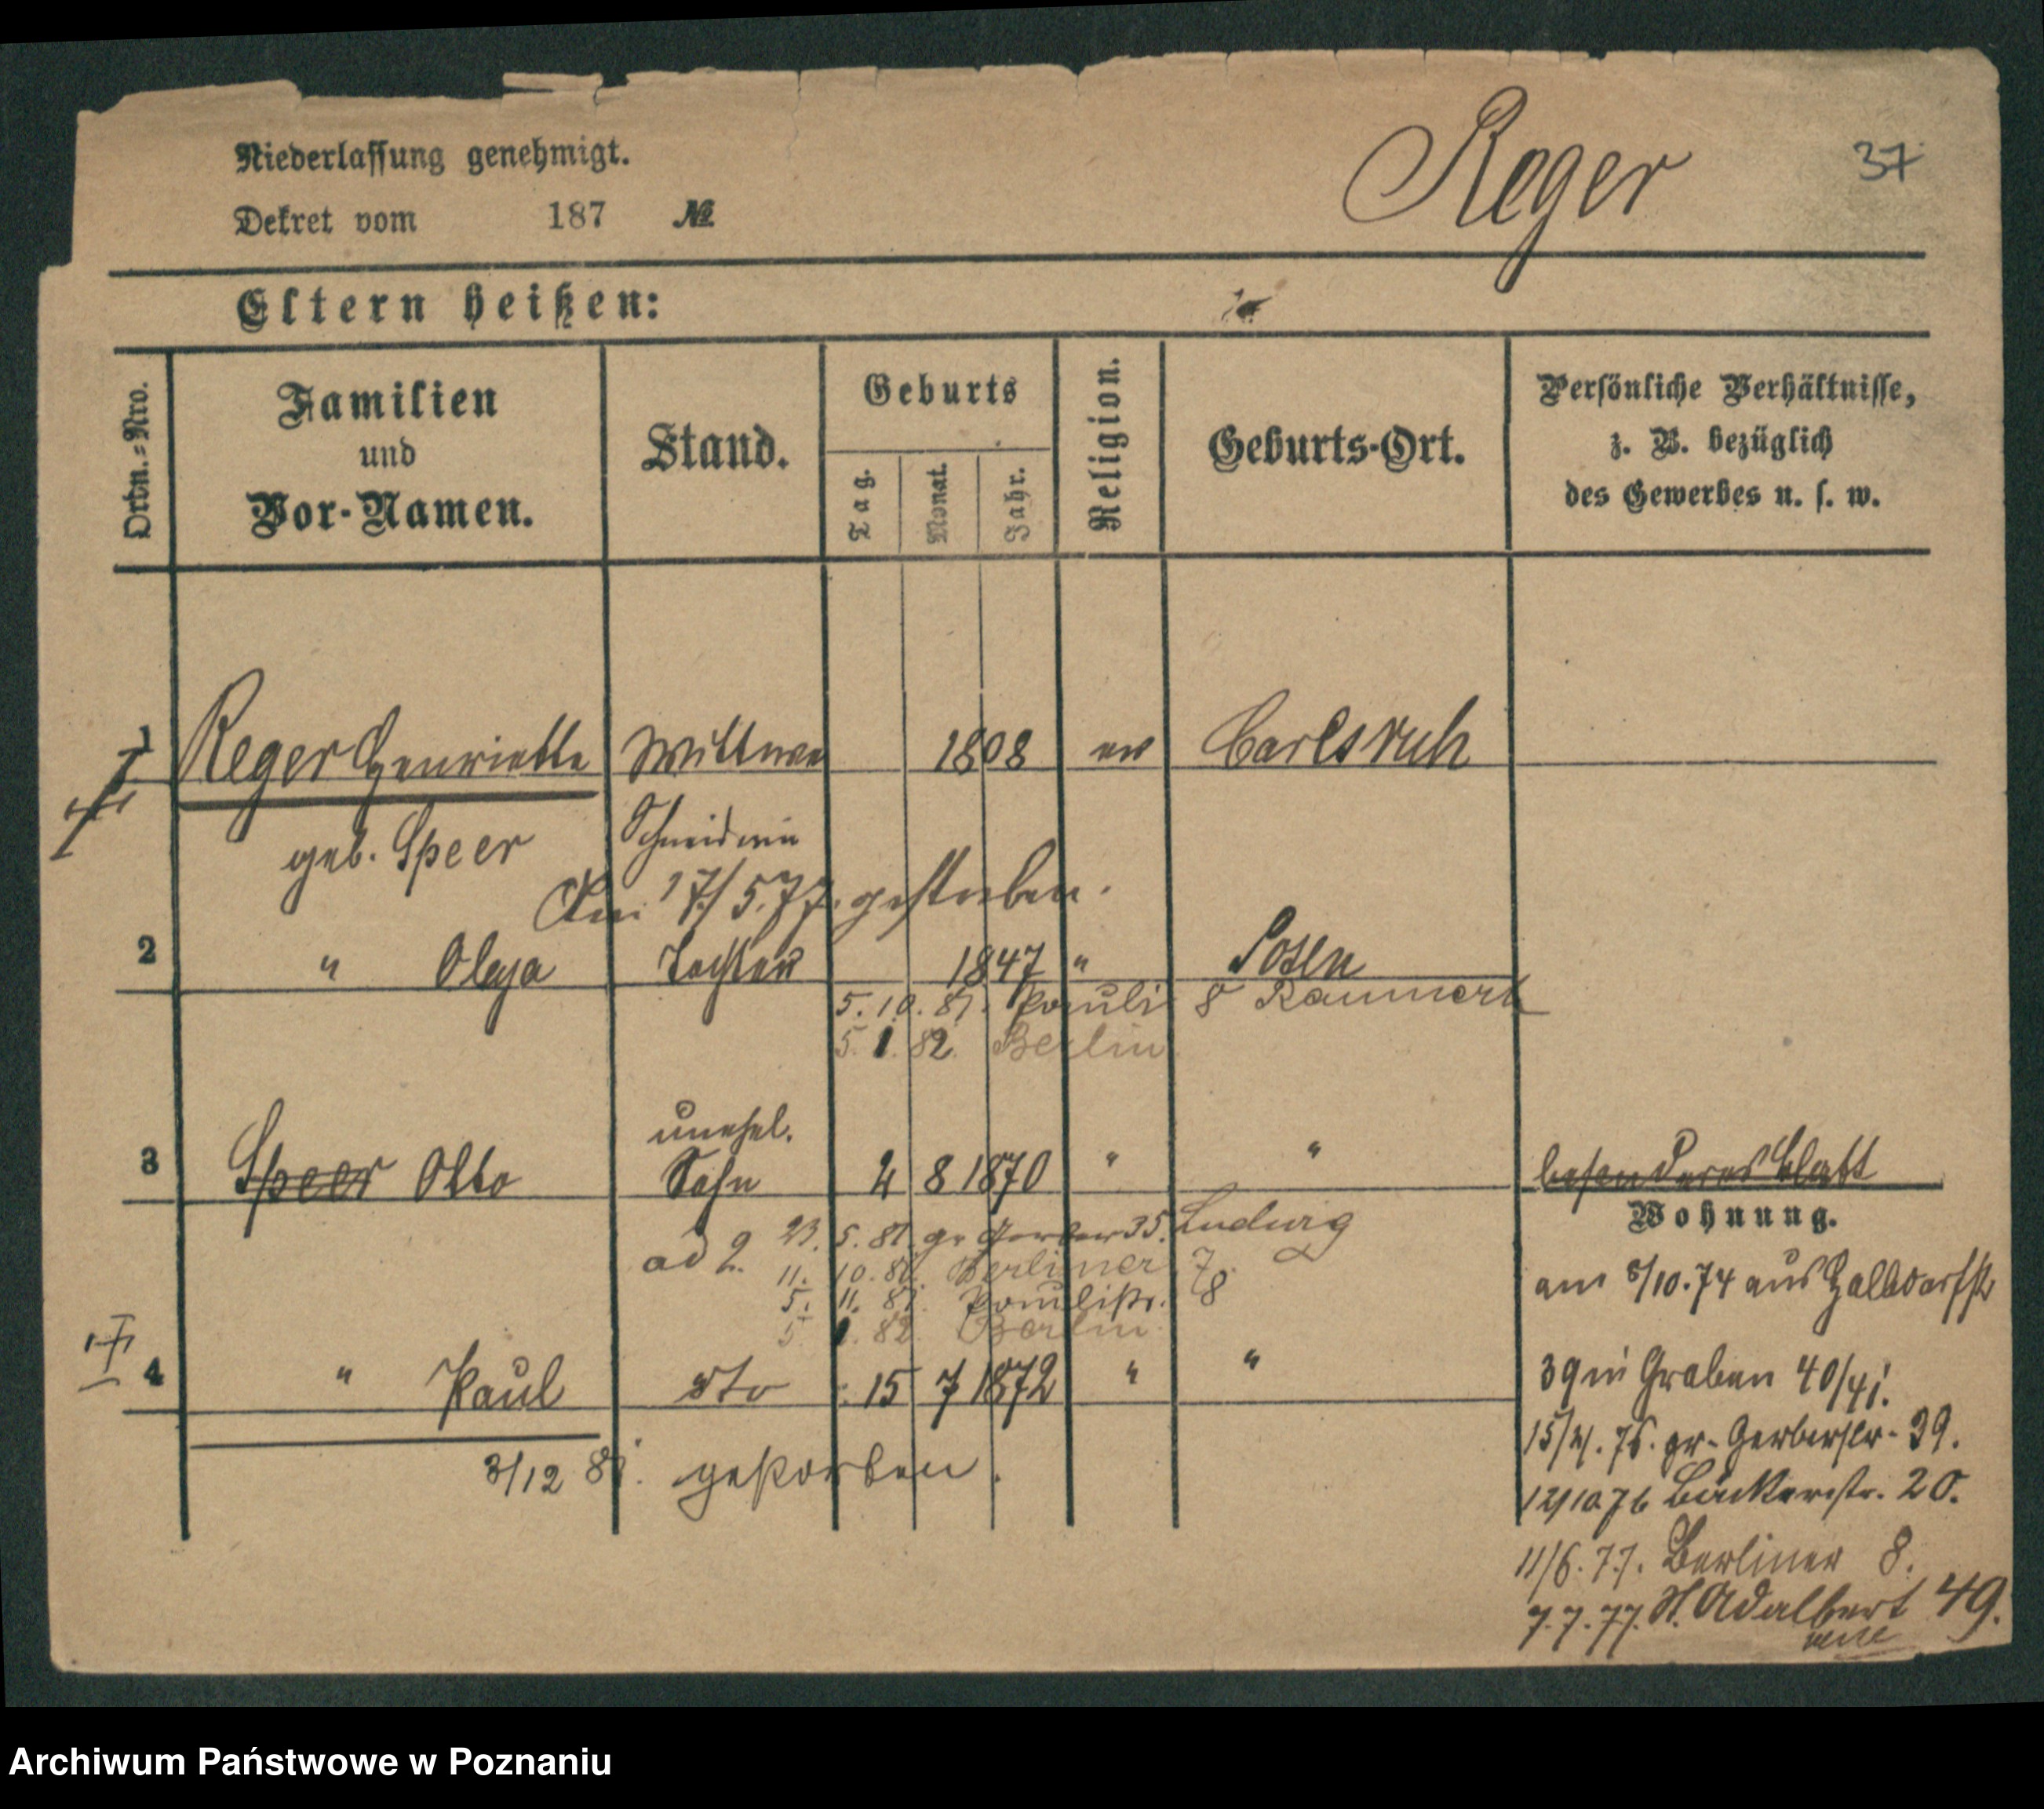 Niederlassung genehmigt.
Reger
37
Dekret vom 187 №
Eltern heißen:
Ordn.-Nro.
Familien
und
Vor-Namen.
Stand.
Geburts
Tag.
Monat.
Jahr.
Religion.
Geburts-Ort.
Persönliche Verhältnisse,
z. B. bezüglich
des Gewerbes u. s. w.
1 Reger Henriette Wittwe 1808 ev Carlsruh
geb. Speer
Am 17/5.77. gestorben.
2 " Olga Tochter 1847 " Posen
5.10.81. Pauli 8
5.1.82. Berlin
unehel.
3 Speer Otto Sohn 4 8 1870 " " besonderes Blatt
Wohnung.
ad 2. 23.5.81. gr Gerber 35. Ludwig
11.10.81. Berliner 7.
5.11.81. Paulistr. 8
5 1.82. Berlin.
4 " Paul dto 15 7 1872 " "
3/12 81. gestorben.
am 5/10.74 aus Halbdorfstr
39 in Graben 40/41.
gr. Gerberstr. 39.
12/10 76 Bäckerstr. 20.
11/6.77. Berliner 8.
7.7.77. St. Adalbert 49.